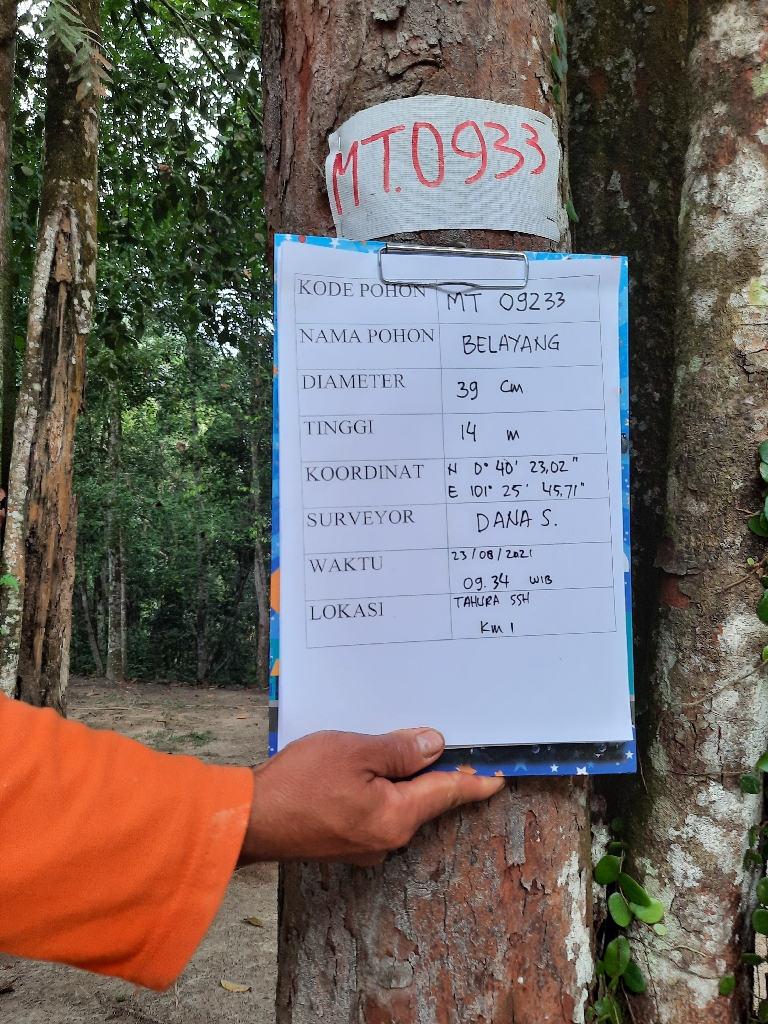 MT.0933
KODE POHON MT 09233
NAMA POHON BELAYANG
DIAMETER 39 cm
TINGGI 14 m
KOORDINAT N 0° 40' 23,02"
E 101° 25' 45,71"
SURVEYOR DANA S.
WAKTU 23/08/2021
09.34 WIB
LOKASI TAHURA SSH
Km 1